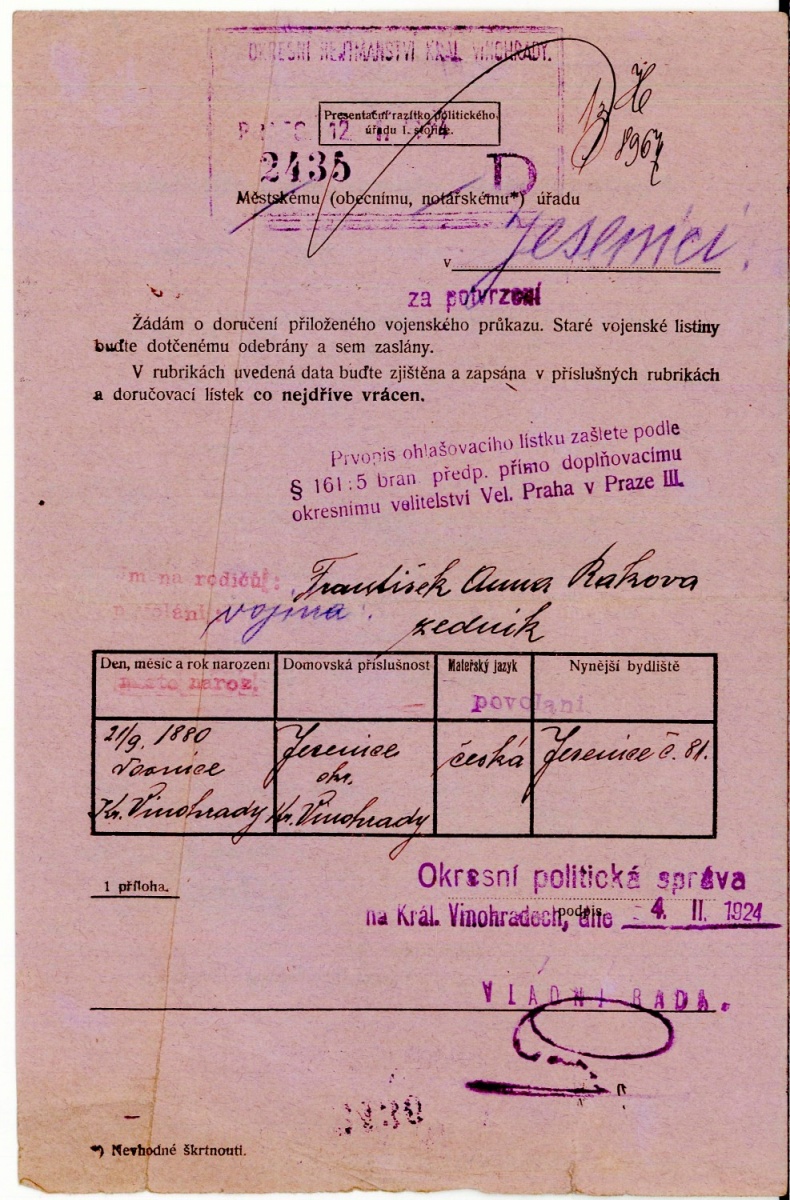 OKRESNÍ HEJTMANSTVÍ KRÁL. VINOHRADY.
Presentační razítko politického
úřadu I. stolice.
12.
2435
D
896
Městskému (obecnímu, notářskému*) úřadu
v Jesenici.
za potvrzení
Žádám o doručení přiloženého vojenského průkazu. Staré vojenské listiny
buďte dotčenému odebrány a sem zaslány.
V rubrikách uvedená data buďte zjištěna a zapsána v příslušných rubrikách
a doručovací lístek co nejdříve vrácen.
Prvopis ohlašovacího lístku zašlete podle
§ 161:5 bran. předp. přímo doplňovacímu
okresnímu velitelství Vel. Praha v Praze III.
na rodičů: František Anna Rakova
vojína: zedník
Den, měsíc a rok narození Domovská příslušnost Mateřský jazyk Nynější bydliště
místo naroz. povolání
21/9. 1880 Jesenice česká Jesenice č. 81.
okr.
Kr. Vinohrady Kr. Vinohrady
1 příloha.
Okresní politická správa
podpis
na Král. Vinohradech, dne 4. II. 1924
VLÁDNÍ RADA.
*) Nevhodné škrtnouti.